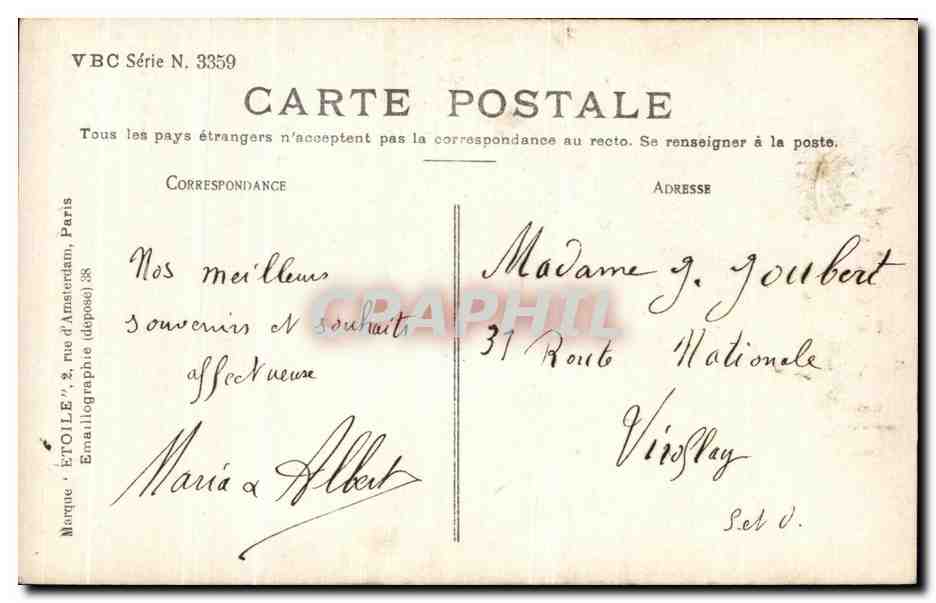 VBC Série N. 3359
CARTE POSTALE
Tous les pays étrangers n'acceptent pas la correspondance au recto. Se renseigner à la poste.
CORRESPONDANCE
ADRESSE
Marque "ETOILE", 2, rue d'Amsterdam, Paris
Emaillographie (deposé) 38
Nos meilleurs
souvenirs et souhaits
affectueuse
Maria & Albert
Madame J. Joubert
31 Route Nationale
Viroflay
S et O.
CRAPHIL